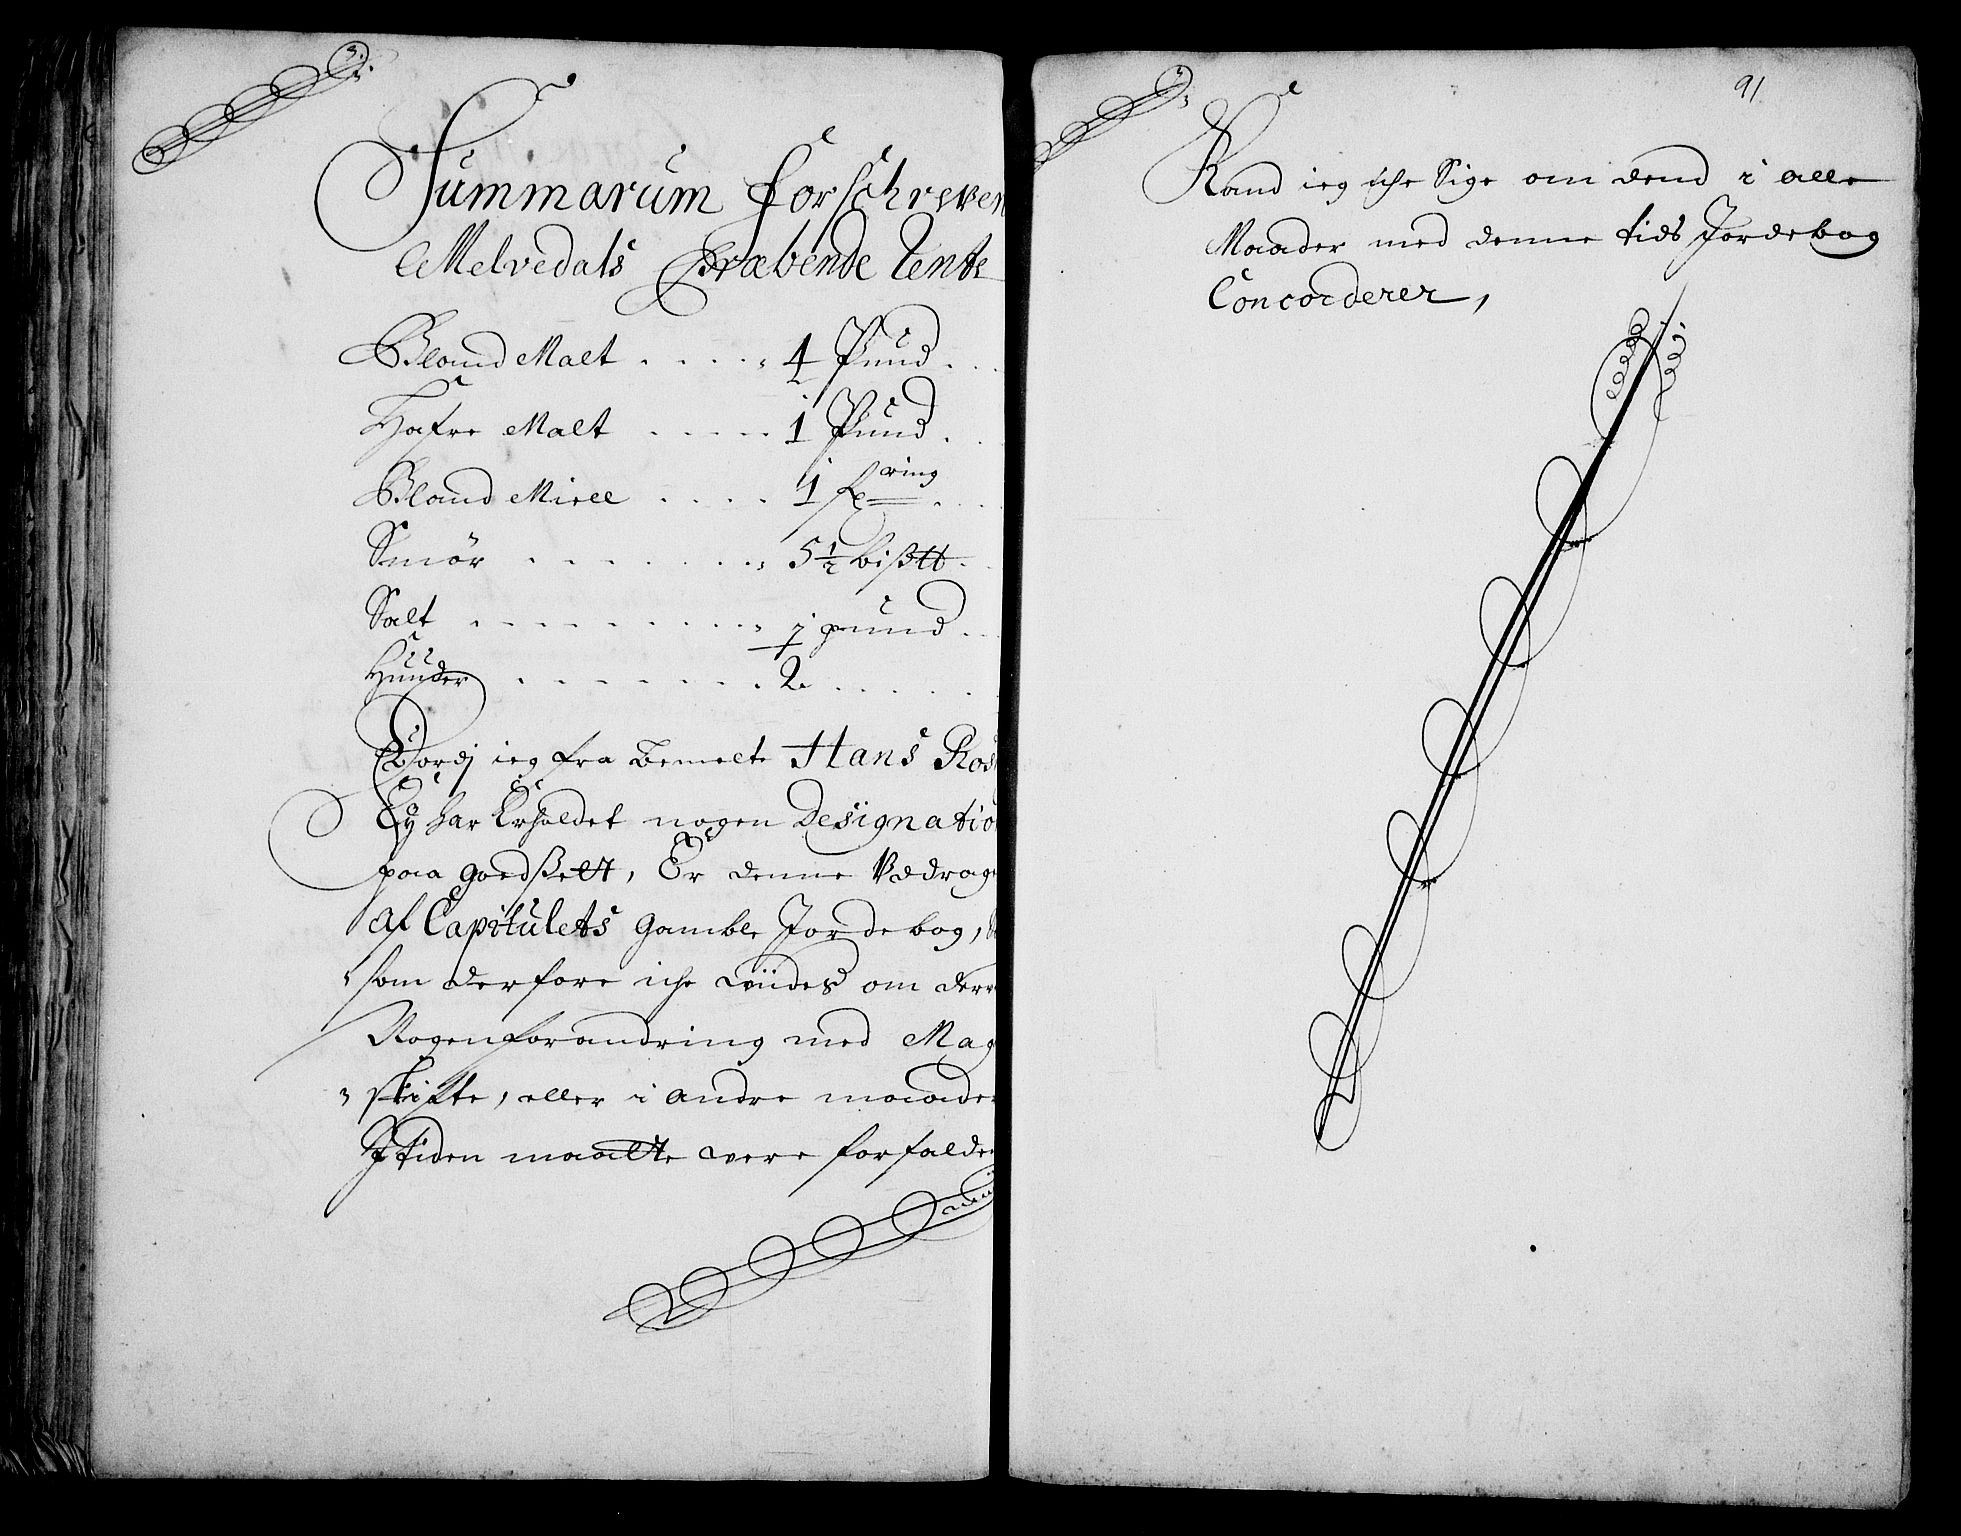 Summarum forschreven
Melvedals Præbende Rente
Bland Malt . . . . 4 Pund . .
Hafre Malt . . . . . 1 Pund . .
Bland Miell . . . . 1 færing . . .
Smør . . . . . . 5 1/2 bißtt . .
Salt . . . . . . . . . 1 pund . .
Huuder . . . . . . . . 2 . . . . .
Efordj ieg fra bemelte Hans Ros
Ey har Erholdet nogen Designatio
paa godßett, Er denne Vddrag
af Capitulets gamble Jordebog,
som derfore iche viides om der
Nogen forandring med Mag
skifte, eller i andre maader
I tiden maatte were forfalde
91
Kand ieg iche Sige om dend i alle
Maader med denne tids Jordebog
Concorderer,